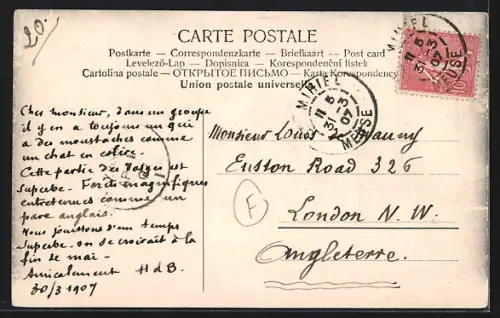 20.
CARTE POSTALE
Postkarte — Correspondenzkarte — Briefkaart — Post card
Levelező-Lap — Dopisnica — Korespondenční listek
Cartolina postale — ОТКРЫТОЕ ПИСЬМО — Karta Korespondency
Union postale universe
MURIEL
11 5
31-3
07
MEUSE
10
MURIEL
11 5
31-3
07
MEUSE
Cher monsieur, dans un groupe
il y en a toujours un qui
a des moustaches comme
un chat en colère.
Cette partie des Vosges est
superbe. Forêts magnifiques
entretenues comme un
parc anglais.
Nous jouissons d'un temps
superbe. on se croirait à la
fin de mai —
Amicalement HdB.
30/3 1907
Monsieur Louis de
Euston Road 326
London N. W.
Angleterre.
F